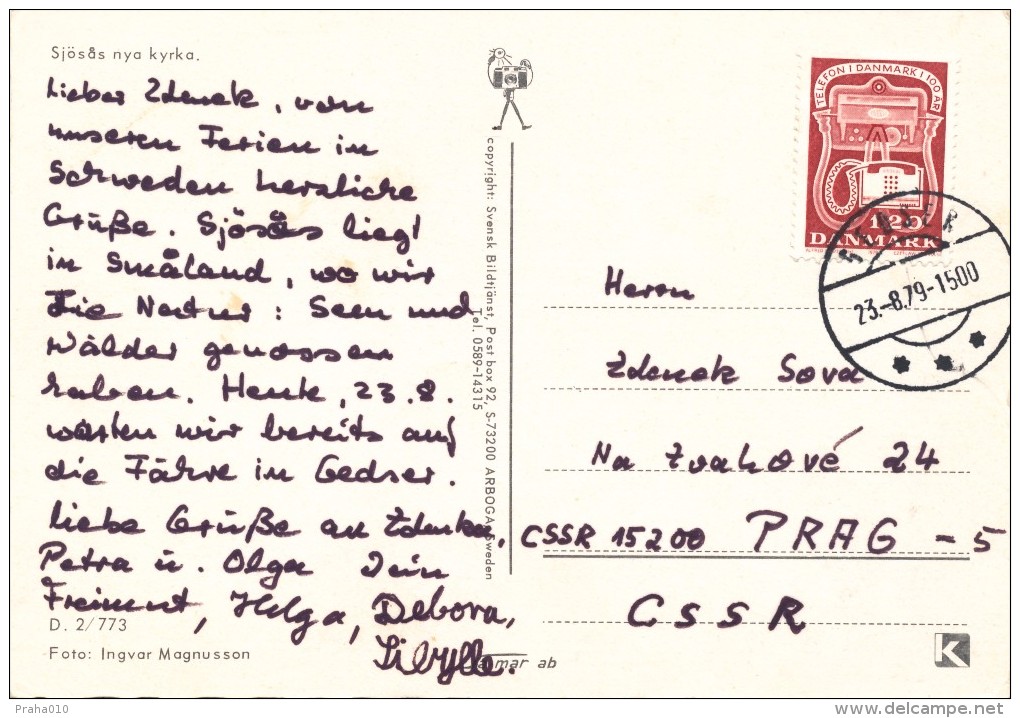 Sjösås nya kyrka.
Lieber Zdenek, von
unseren Ferien in
Schweden herzliche
Grüße. Sjösås liegt
in Småland, wo wir
die Natur: Seen und
Wälder genossen
haben. Heute, 23.8.
warten wir bereits auf
die Fähre in Gedser.
Liebe Grüße an Zdenka,
Petra u. Olga Dein
Freimut, Helga, Debora,
Sibylle.
D. 2/773
Foto: Ingvar Magnusson
copyright: Svensk Bildtjänst, Post box 92, S-73200 ARBOGA Sweden
Tel. 0589-14315
TELEFON I DANMARK I 100 ÅR
120
DANMARK
GEDSER
23.-8.79-1500
Herrn
Zdenek Sova
Na Zvahové 24
CSSR 15200 PRAG - 5
CSSR
ab
K
Praha010
delcampe.net